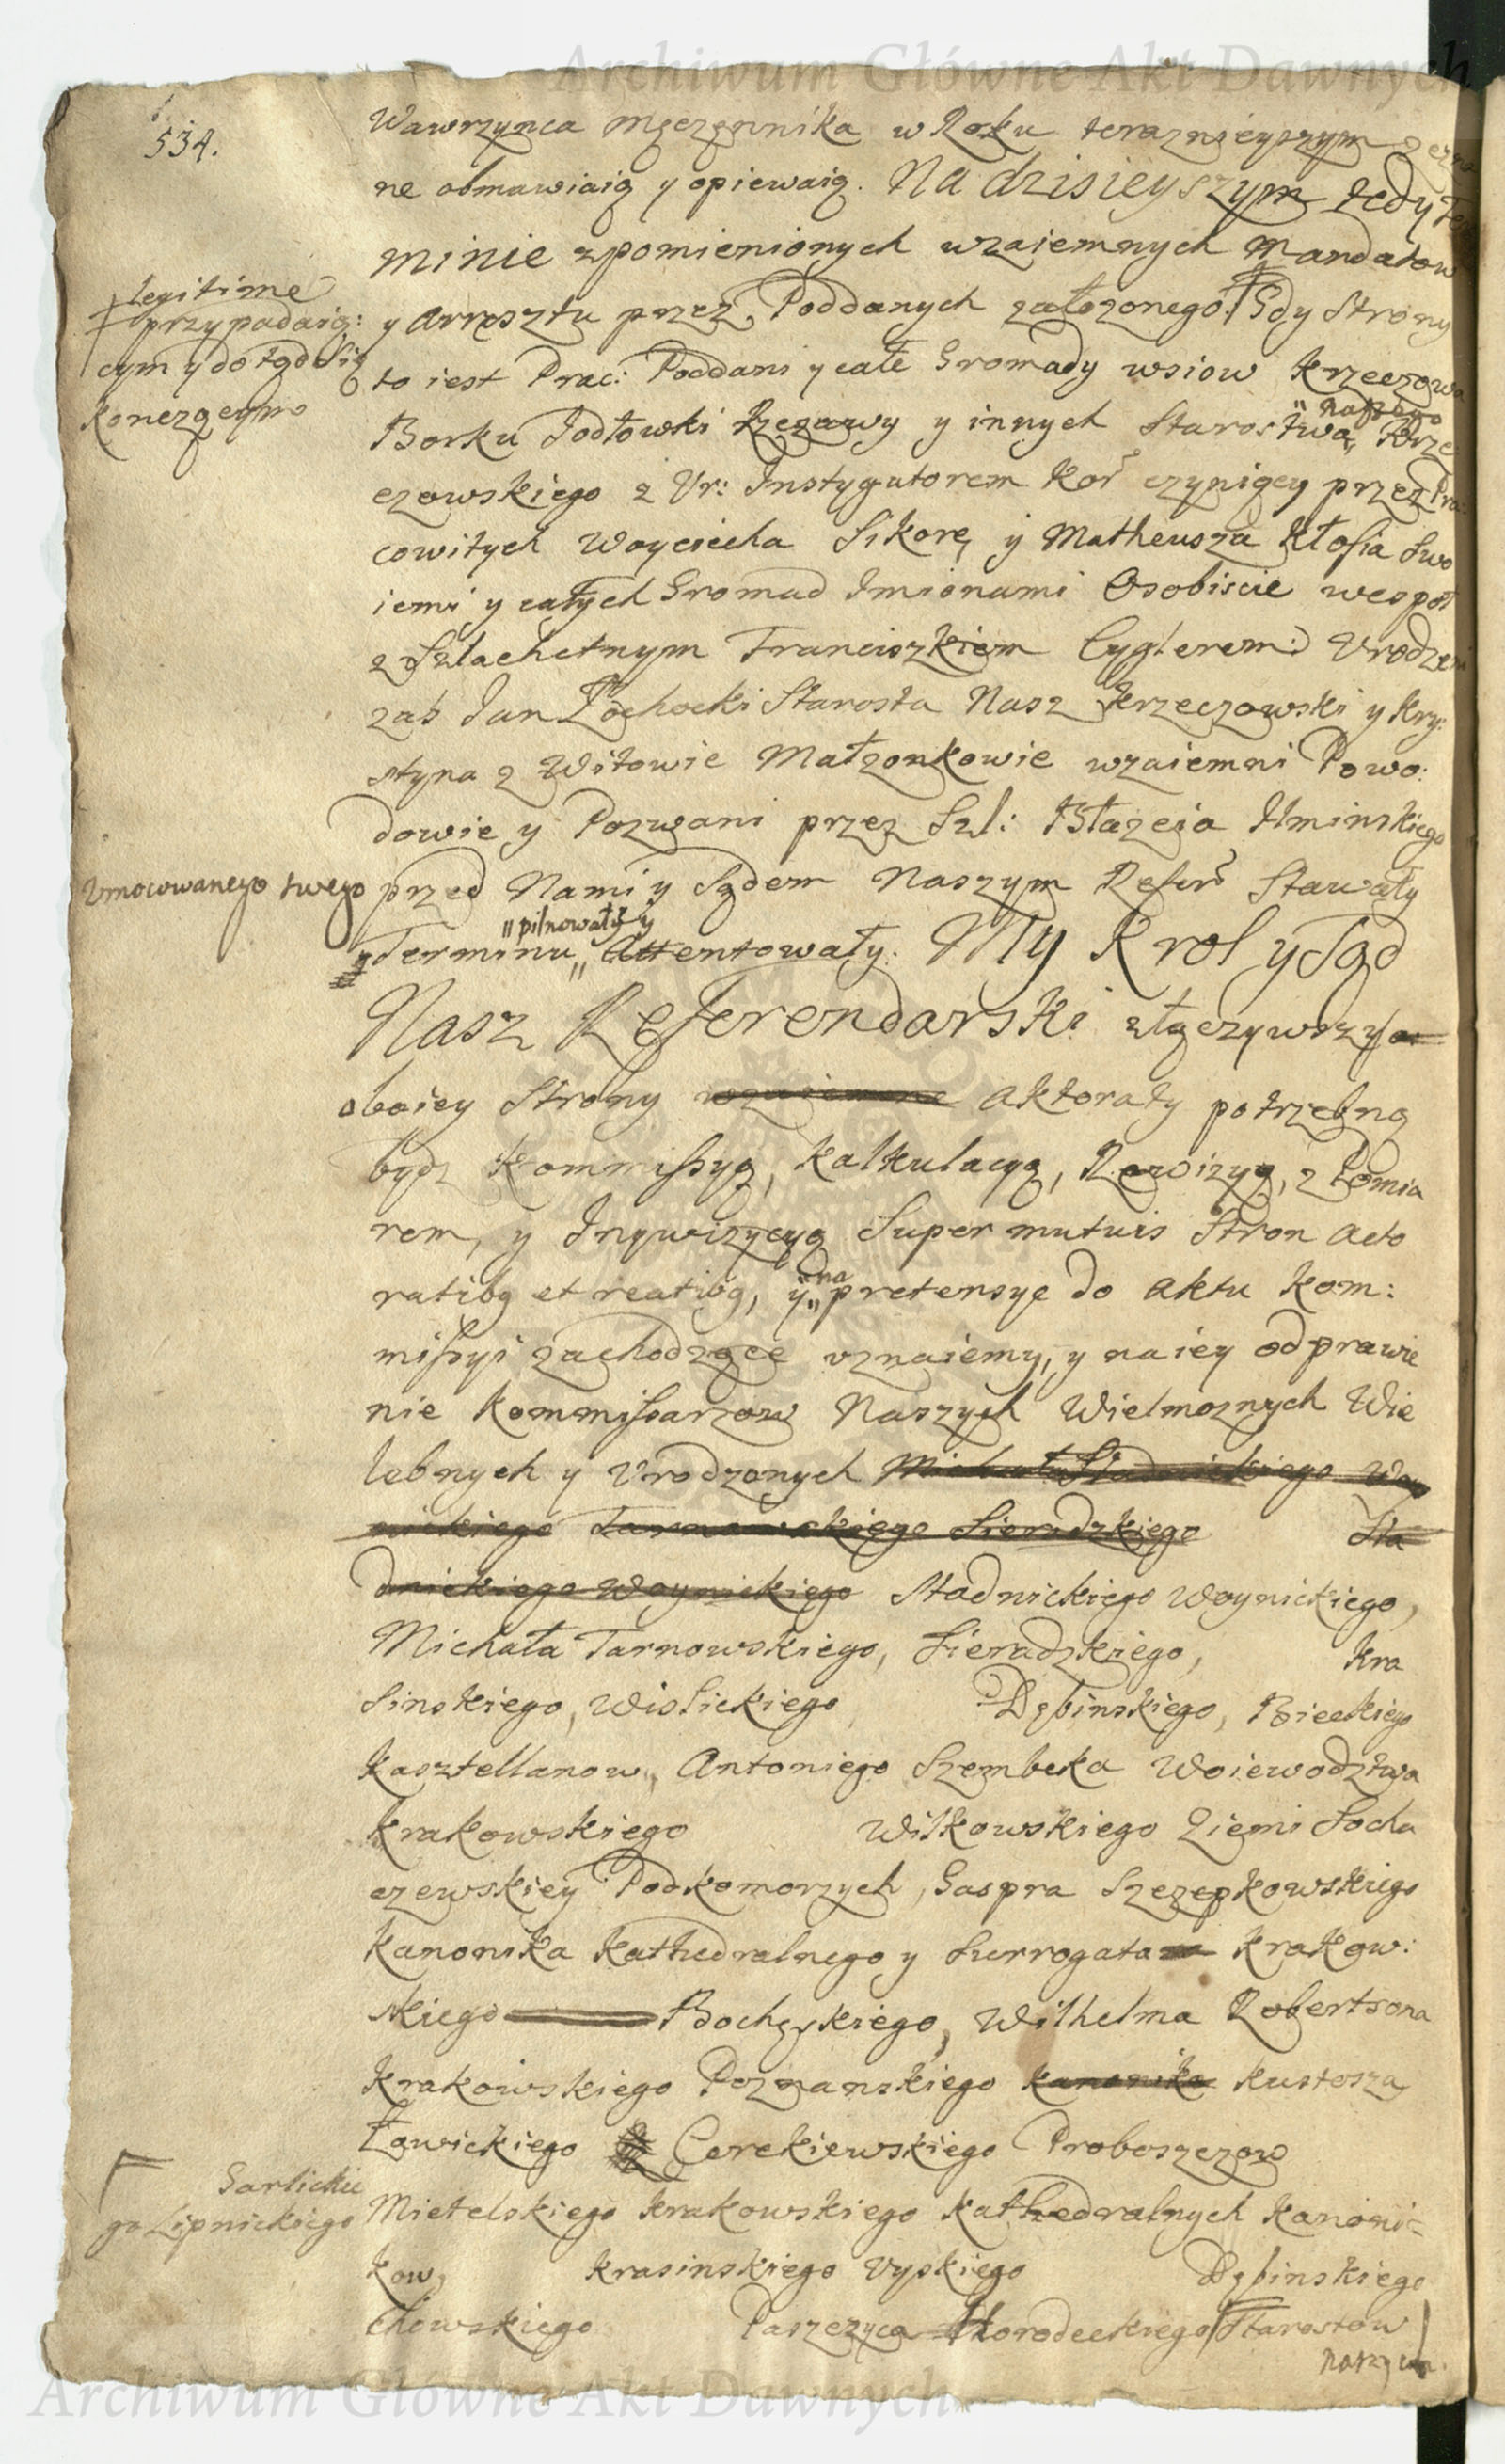 Archiwum Główne Akt Dawnych
534.
Wawrzynca Męczennika w Roku teraznieyszym zezna
ne obmawiaią y opiewaią. Na dzisieyszym tedy Ter
minie zpomienionych wzaiemnych Mandatow
y Arresztu przez Poddanych założonego Gdy Strony
legitime
przypadaią:
cym y dotąd się
konczącym
to iest Prac: Poddani y całe Gromady wsiow Krzeczowa
Borku Jodłowki Rzezawy y innych Starostwa „Naszego„ Krze
czowskiego z Ur: Instygatorem Kor czyniący przez Pra:
cowitych Woyciecha Sikorę y Matheusza Kłosia Swo
iemi y całych Gromad Imionami Osobiscie wespoł
z Szlachetnym Franciszkiem Cyglerem Urodzeni
zas Jan Łochocki Starosta Nasz Krzeczowski y Kry:
styna z Witowic Małzonkowie wzaiemni Powo:
dowie y Pozwani przez Szl: Błazeia Ilminskiego
Umocowanego swego
przed Nami y Sądem Naszym Refer Stawały
y Terminu „pilnowały y„ Attentowały. My Krol y Sąd
Nasz Referendarski złączywszy
oboiey Strony wzaiemne aktoraty potrzebną
bydz Kommissyą, Kalkulacyą, Rewizyą, z Pomia
rem, y Inqwizycyą Super mutuis Stron acto
ratibq et reatibq, y „na„ pretensye do aktu Kom:
missyi zachodzące uznaiemy, y na iey odprawie
nie Kommissarzow Naszych Wielmoznych Wie
lebnych y Urodzonych Michała Stadnickiego Woy
nickiego Tarnowskiego Sieradzkiego Sta
dnickiego Woynickiego Stadnickiego Woynickiego,
Michała Tarnowskiego, Sieradzkiego, Kra
sinskiego, Wislickiego Dębinskiego, Bieckiego
Kasztellanow, Antoniego Szembeka Woiewodztwa
Krakowskiego Witkowskiego Ziemi Socha
czewskiey Podkomorzych, Gaspra Szczepkowskiego
Kanonika Kathedralnego y Surrogata Krakow:
skiego Bochęskiego, Wilhelma Robertsona
Krakowskiego Poznanskiego kanonika Kustosza
Łowickiego Cerekiewskiego Proboszczow
Garlickie
go Lipnickiego
Mietelskiego Krakowskiego Kathedralnych Kanoni:
kow, Krasinskiego Uyskiego Dębinskiego
chowskiego Paszczyca Horodeckiego Starostow
Naszych
Archiwum Główne Akt Dawnych